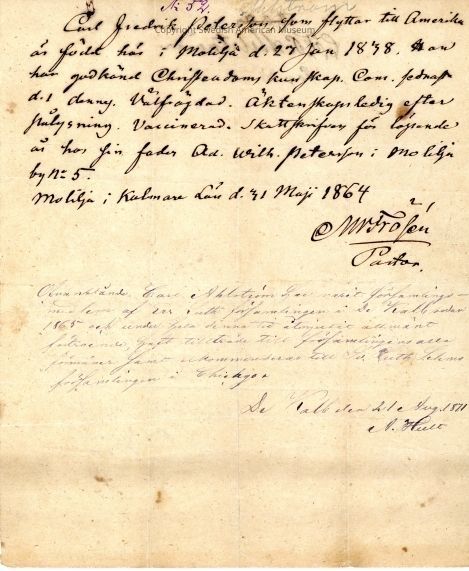 № 52.
Copyright Swedish American Museum
Carl Fredrik Peterson som flyttar till Amerika
är född här i Molilja d. 27 Jan 1838. Han
har godkänd Christendoms kunskap. Com. sednast
d. 1 denny. Välfrägdad. Äktenskapsledig efter
Pålysning. Vaccinerad. Skattskrifven för löpande
år hos sin fader Ad. Wilh. Peterson i Molilja
by № 5.
Molilja i Kalmare Län d. 31 Maji 1864
Frosén
Pastor.
Carl Ahlström har varit församlings-
medlem af församlingen i De Kalb sedan
1865 och under hela denna tid åtnjutit allmänt
förtroende, till församlingens alla
förmåner samt rekommenderas till
församlingen i Chicago
De Kalb den 21 Aug. 1871
A. Hult